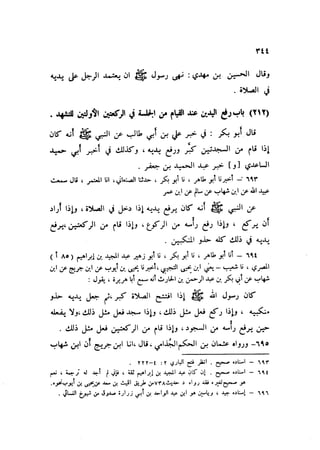 ٣٤٤
وقال الحسين بن مهدي: نهى رسول ﷺ ان يعتمد الرجل على يديه
في الصلاة .
(٢١٢) باب رفع اليدين عند القيام من الجلسة في الركعتين الأوليين للتشهد .
قال أبو بكر : في خبر علي بن أبي طالب عن النبي ﷺ أنه كان
إذا قام من السجدتين كبّر ورفع يديه ، وكذلك في خبر أبي حميد
الساعدي [ و ] خبر عبد الحميد بن جعفر .
٦٩٣ – أخبرنا أبو طاهر ، نا أبو بكر ، حدثنا الصنعاني ، انا المعتمر ، قال سمعت
عبيد الله عن ابن شهاب عن سالم عن ابن عمر
عن النبي ﷺ أنه كان يرفع يديه إذا دخل في الصلاة ، وإذا أراد
أن يركع ، وإذا رفع رأسه من الركوع ، وإذا قام من الركعتين يرفع
يديه في ذلك كله حذو المنكبين .
٦٩٤ – أنا أبو طاهر ، نا أبو بكر ، نا أبو زهير عبد المجيد بن إبراهيم (٨٥ أ)
المصري ، نا شعيب – يعني ابن يحيى التجيبي ، أخبرنا يحيى بن أيوب عن ابن جريج عن ابن
شهاب عن أبي بكر بن عبد الرحمن بن الحارث أنه سمع أبا هريرة ، يقول :
كان رسول الله ﷺ إذا افتتح الصلاة كبر ، ثم جعل يديه حذو
منكبيه ، وإذا ركع فعل مثل ذلك ، وإذا سجد فعل مثل ذلك ، ولا يفعله
حين يرفع رأسه من السجود ، وإذا قام من الركعتين فعل مثل ذلك .
٦٩٥- ورواه عثمان بن الحكم الجذامي ، قال ، انا ابن جريج أن ابن شهاب
٦٩٣ – اسناده صحيح . انظر فتح الباري ٢ : ٢٢٢-٤ .
٦٩٤ – اسناده صحيح . إن كان عبد المجيد بن إبراهيم ثقة ، فإني لم أجد له ترجمة ، نعم